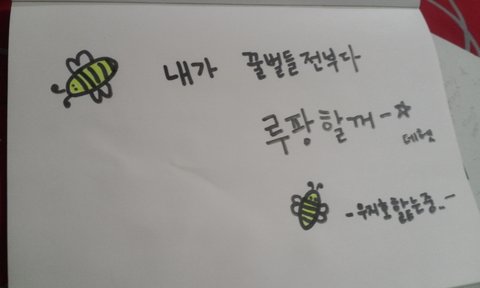 내가 꿀벌들전부다
루팡할꺼-☆
데헷
-우지호핥는중..-